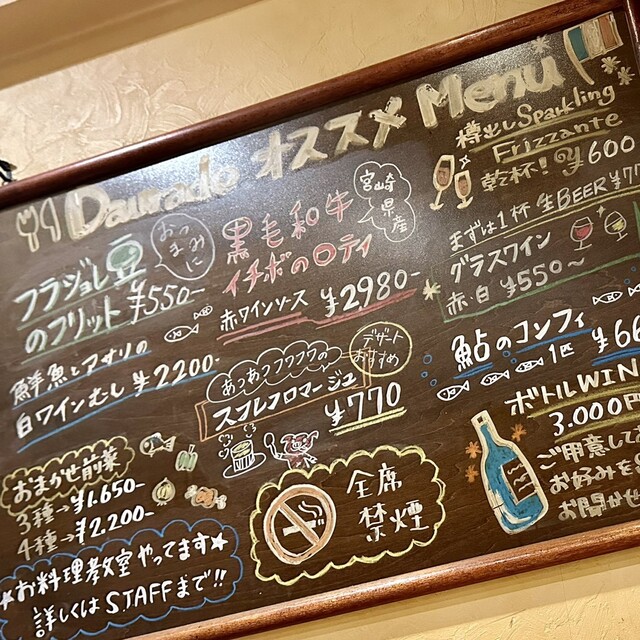 Daurado オススメ Menu
おつまみに
フラジョレ豆
のフリット ¥550-
鮮魚とアサリの
白ワインむし ¥2200-
おまかせ前菜
3種→¥1.650-
4種→¥2.200-
★お料理教室やってます★
詳しくはSTAFFまで!!
宮崎県産
黒毛和牛
イチボのロティ
赤ワインソース ¥2980-
デザートおすすめ
あつあつフワフワの
スフレフロマージュ
¥770
全席
禁煙
樽出しSparkling
Frizzante
乾杯! ¥600
まずは1杯 生BEER ¥77
グラスワイン
赤・白 ¥550〜
鮎のコンフィ
1匹 ¥66
ボトルWIN
3.000円
ご用意して
お好みを
お聞かせ